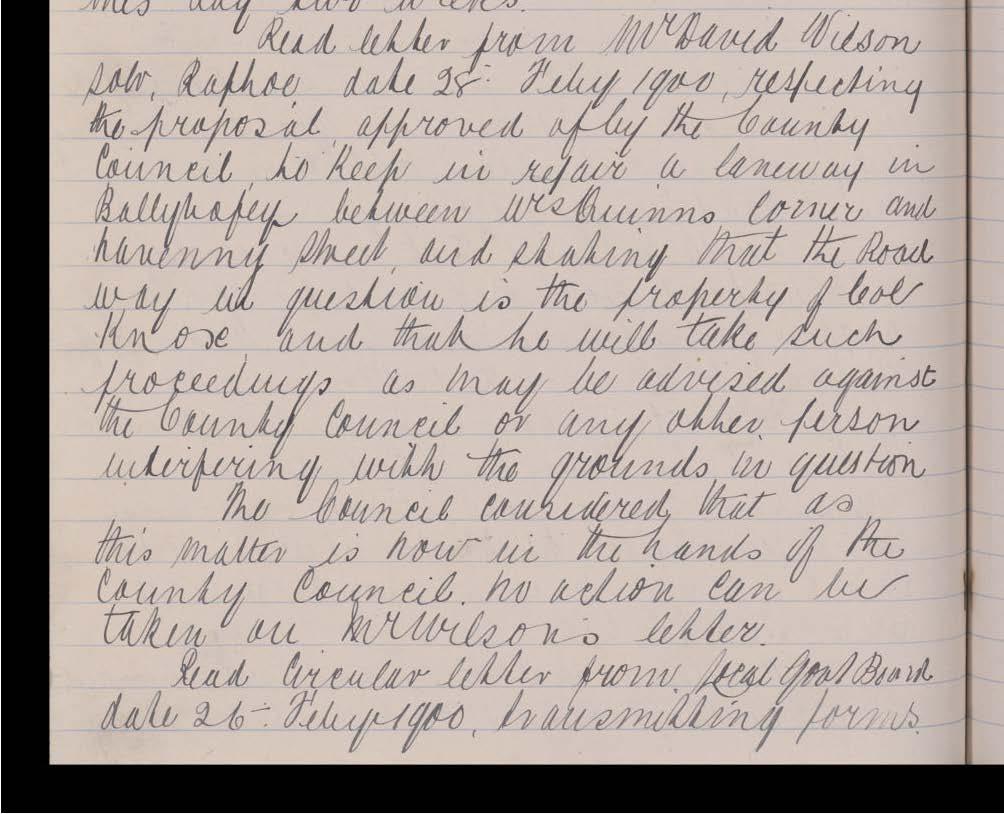 this day two weeks.
Read letter from Mr David Wilson
solr, Raphoe, date 28th Feby 1900, respecting
the proposal approved of by the County
Council to keep in repair a laneway in
Ballybofey between Mrs Quinns Corner and
Navenny Street, and stating that the Road
way in question is the property of Col
Knox, and that he will take such
proceedings as may be advised against
the County Council or any other person
interfering with the grounds in question
The Council considered that as
this matter is now in the hands of the
County Council. no action can be
taken on Mr Wilson's letter.
Read Circular letter from Local Govt Board
date 26th Feby 1900, transmitting forms.